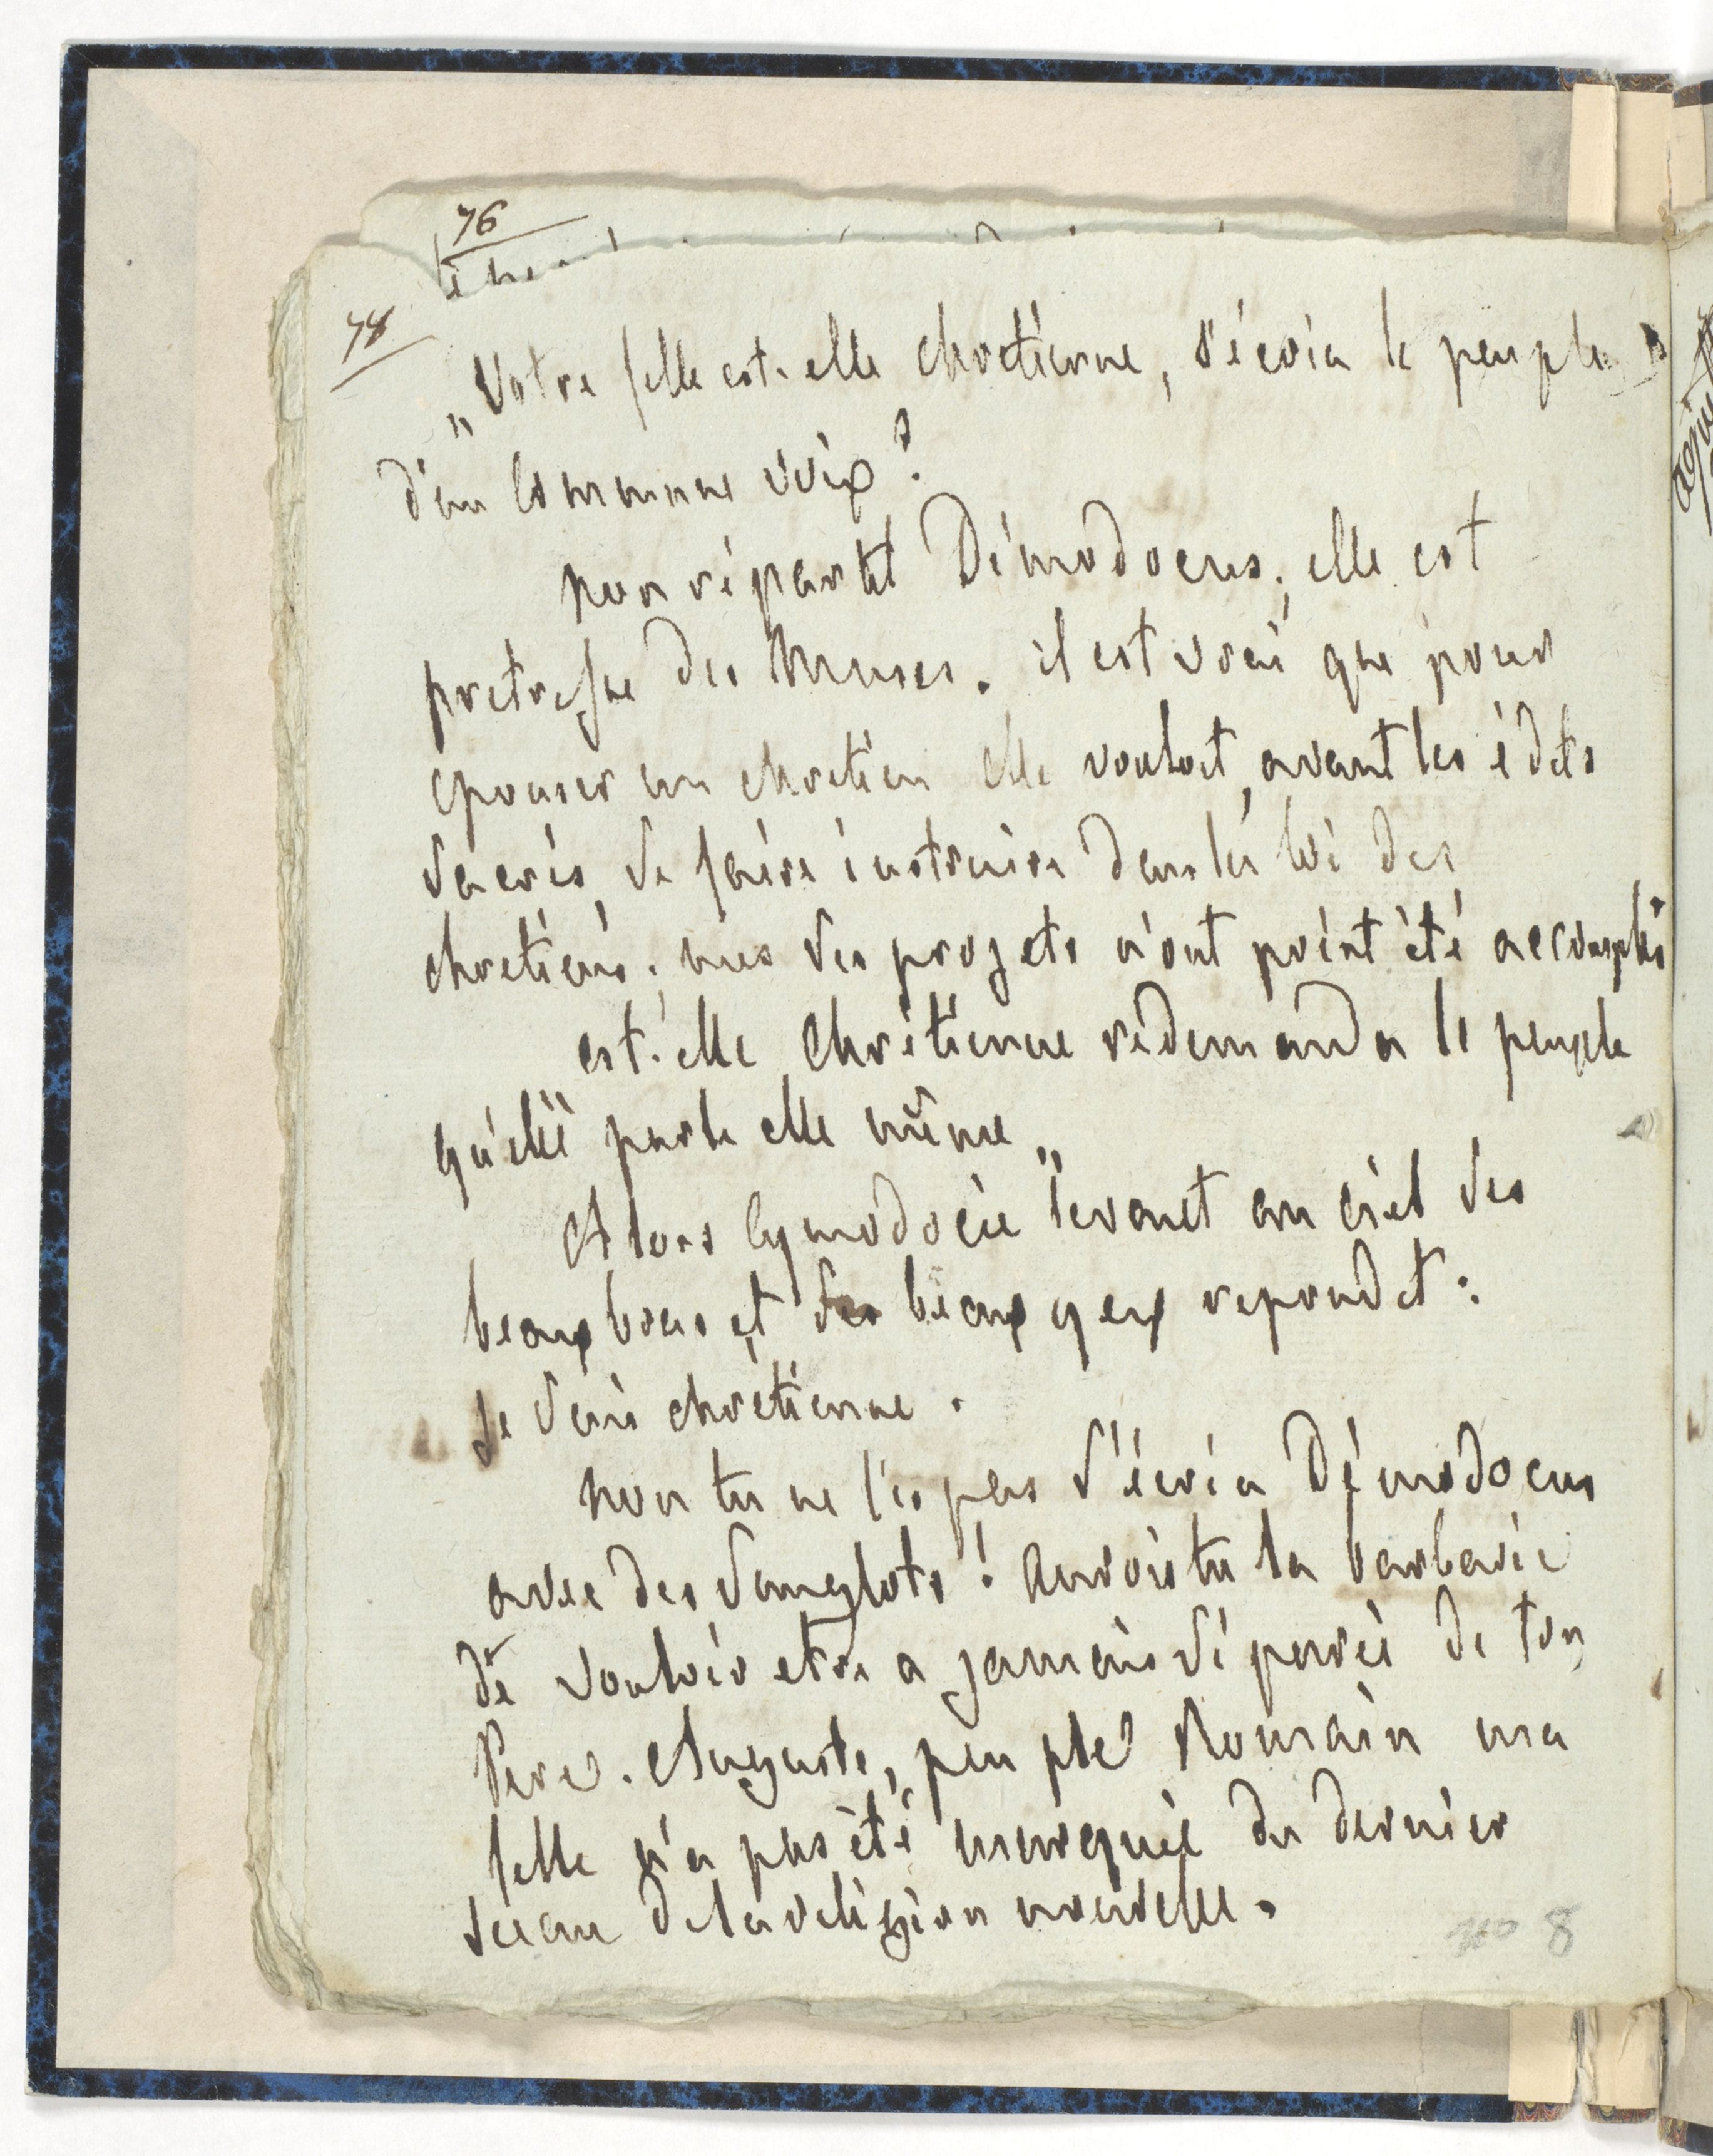 76
74
"Votre fille est-elle chretienne, s'écria le peuple
d'un commune voix?
non répartit Démodocus; elle est
pretresse des Muses. il est vrai que pour
epouser un chretien elle vouloit, avant les édits
sacrés, se faire instruire dans la loi des
chretiens; mes ses projets n'ont point été accomplis
est-elle chrétienne redemanda le peuple
qu'elle parle elle même"
Alors Cymodocée levant au ciel ses
beaux bras et ses beaux yeux repondit:
Je suis chrétienne.
non tu ne l'es pas s'écria Démodocus
avec des sanglots! aurois tu la barbarie
de vouloir etre a jamais séparée de ton
Pere. Auguste, peuple Romain ma
fille n'a pas été marquée du dernier
sceau de la religion nouvelle.
no 8